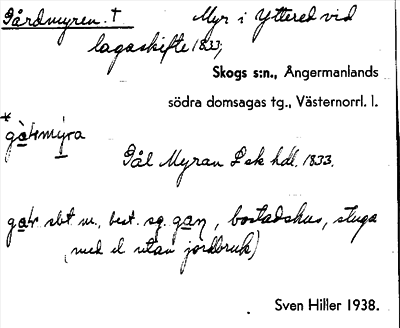 Gårdmyren. † Myr i Yttered vid
lagaskifte 1833;
Skogs s:n., Ångermanlands
södra domsagas tg., Västernorrl. l.
*gàrmýra
Gål Myran Lsk hdl. 1833.
gar sbt m., best. sg. gan, bostadshus, stuga
(med el utan jordbruk)
Sven Hiller 1938.